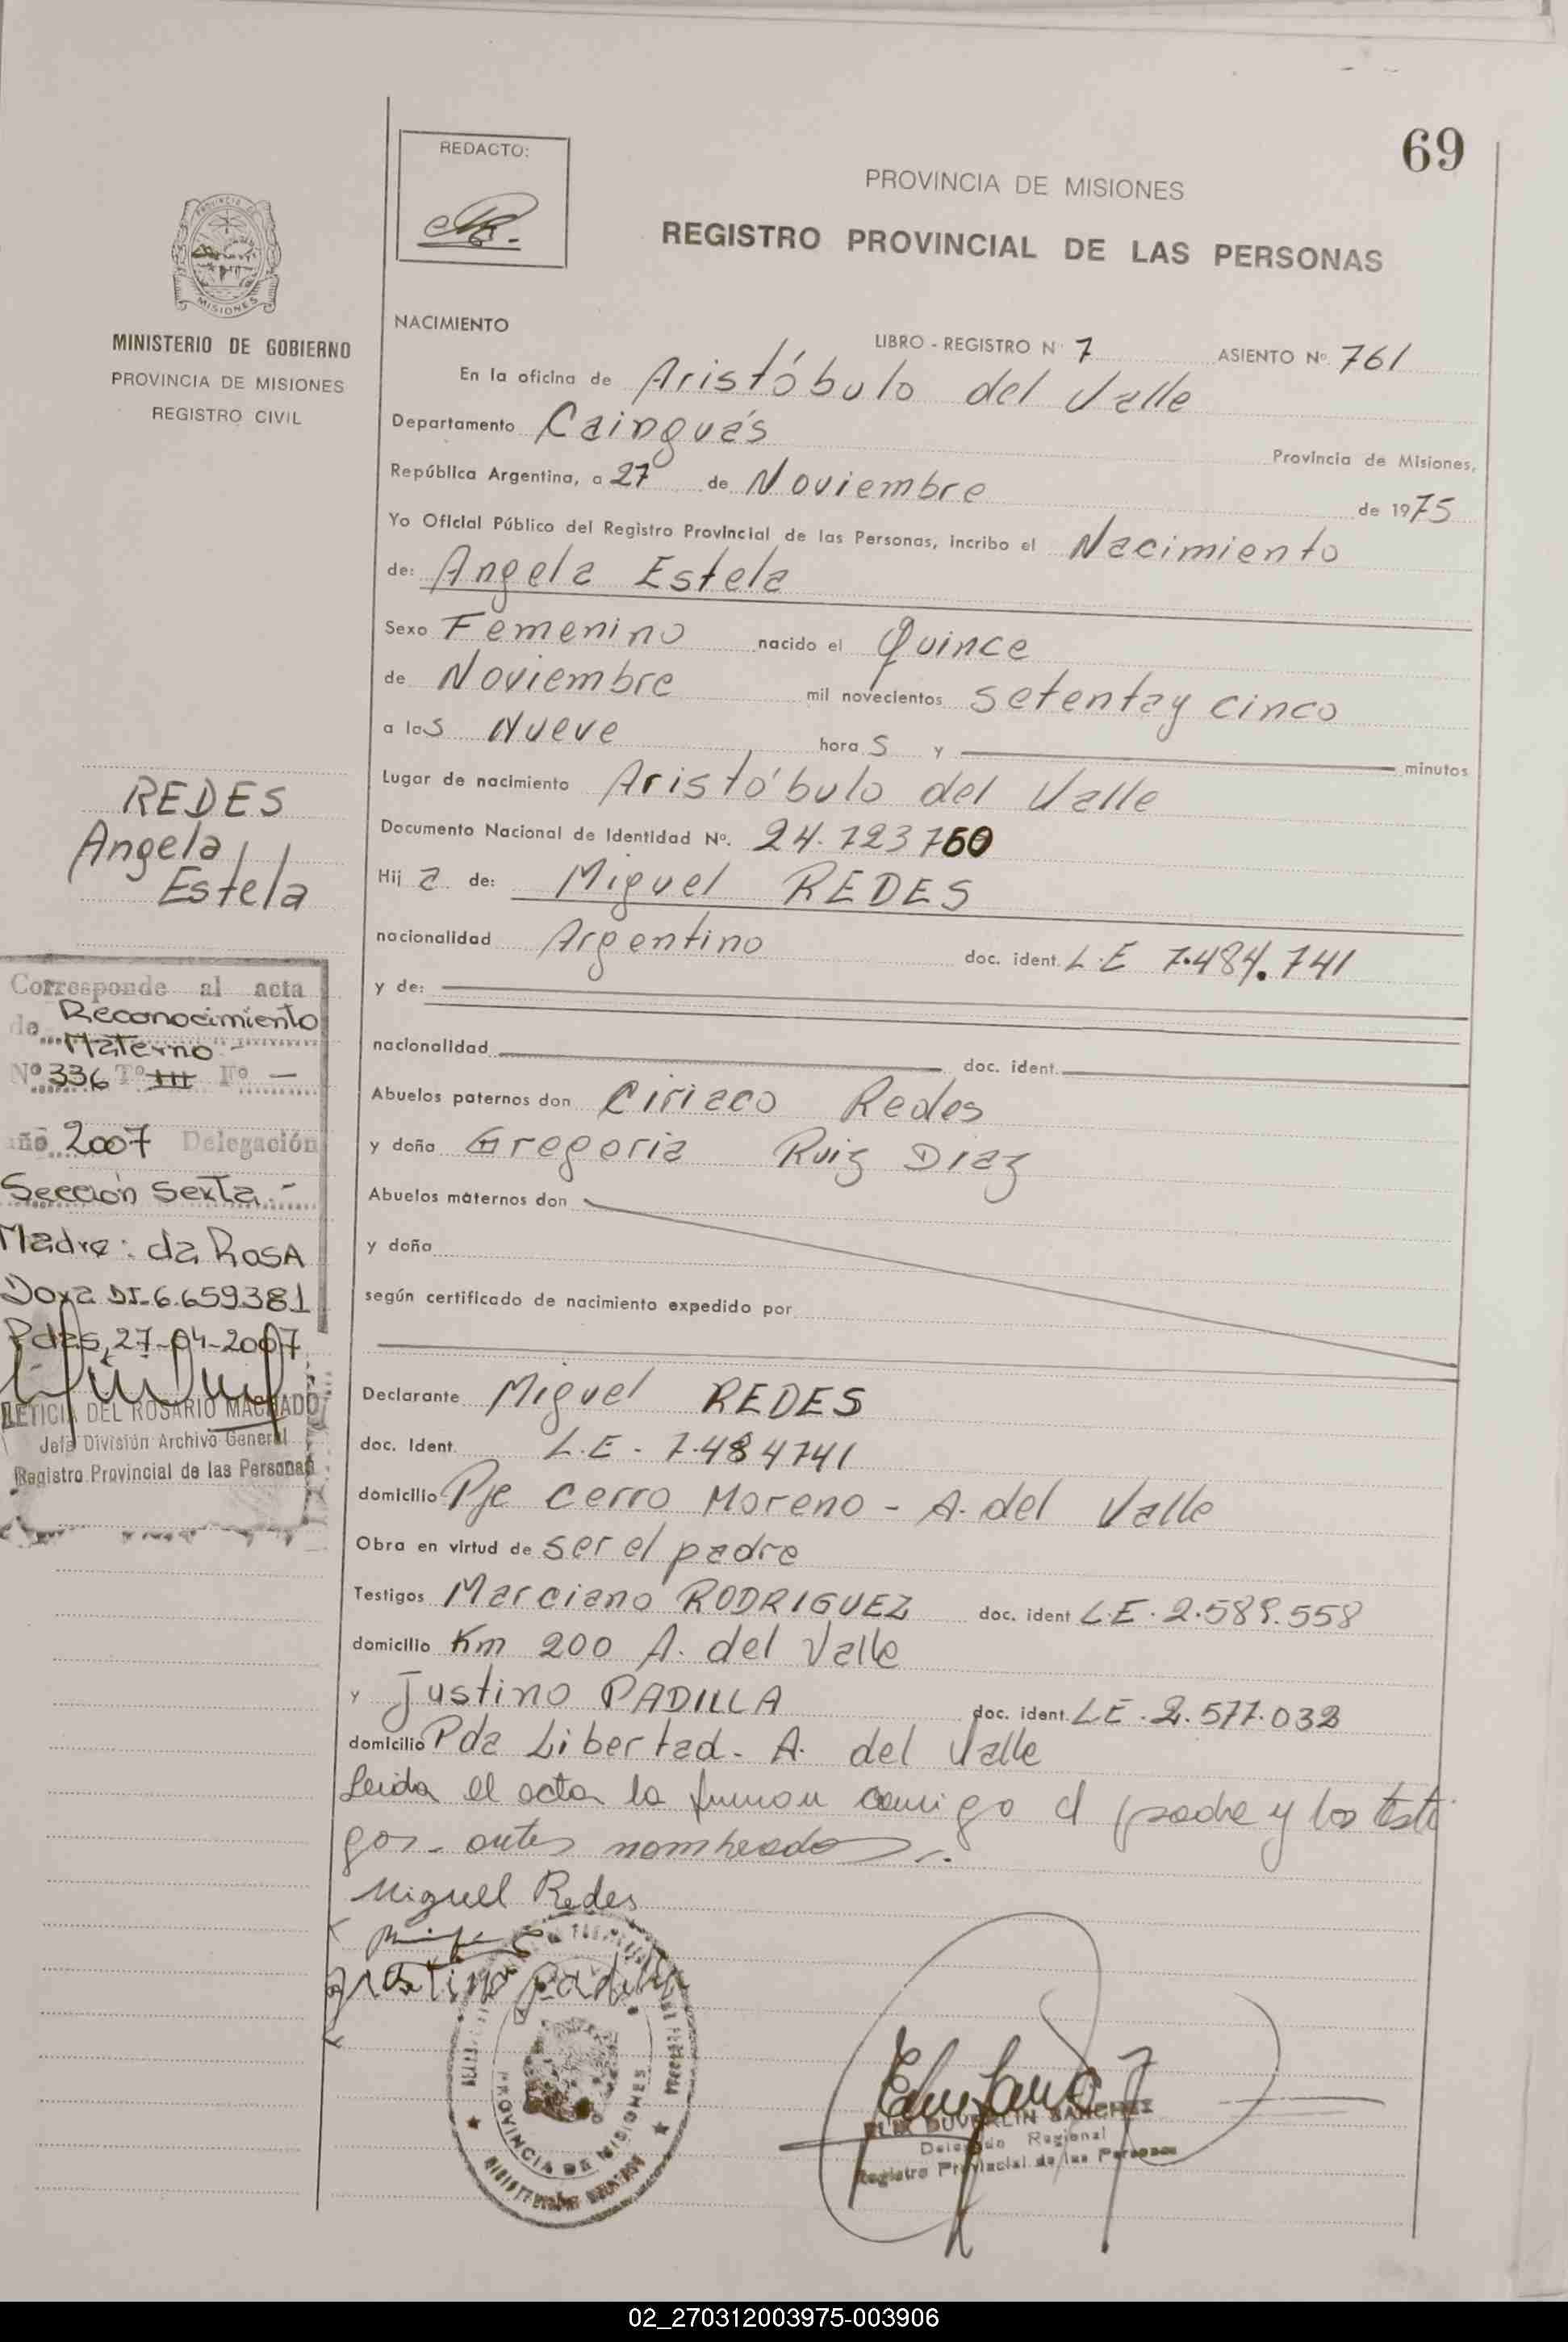 69
REDACTO:
PROVINCIA DE MISIONES
REGISTRO PROVINCIAL DE LAS PERSONAS
MISIONES
MINISTERIO DE GOBIERNO
PROVINCIA DE MISIONES
REGISTRO CIVIL
NACIMIENTO
LIBRO - REGISTRO N 7 ASIENTO Nº. 761
En la oficina de Aristóbulo del Valle
Departamento Cainguás Provincia de Misiones,
República Argentina, a 27 de Noviembre de 1975
Yo Oficial Público del Registro Provincial de las Personas, incribo el Nacimiento
de: Angela Estela
Sexo Femenino nacido el Quince
de Noviembre mil novecientos setentay cinco
a las Nueve horas y minutos
Lugar de nacimiento Aristóbulo del Valle
Documento Nacional de Identidad Nº. 24.723760
Hija de: Miguel REDES
nacionalidad Argentino doc. ident. L.E 7.484.741
y de:
nacionalidad doc. ident.
Abuelos paternos don Ciriaco Redes
y doña Gregoria Ruiz Diaz
Abuelos maternos don
y doña
según certificado de nacimiento expedido por
Declarante Miguel REDES
doc. Ident. L.E - 7.484741
domicilio Pje cerro Moreno - A. del Valle
Obra en virtud de ser el padre
Testigos Marciano RODRIGUEZ doc. ident L.E. 2.589.558
domicilio Km 200 A. del Valle
y Justino PADILLA doc. ident. L.E. 2.577.032
domicilio Pda Libertad - A. del Valle
Leida el acta la firman conmigo el padre y los testi
gos - antes nombrados.-
Miguel Redes
Justino Padilla
PROVINCIA DE MISIONES
SANCHEZ
Delegado Regional
Registro Provincial de las Personas
REDES
Angela
Estela
Corresponde al acta
de Reconocimiento
Materno -
Nº 336 Tº III Fº -
año 2007 Delegación
Sección Sexta.-
Madre: da ROSA
Dora DI-6.659381
Pdas, 27-04-2007
LETICIA DEL ROSARIO MACHADO
Jefa División Archivo General
Registro Provincial de las Personas
02_270312003975-003906